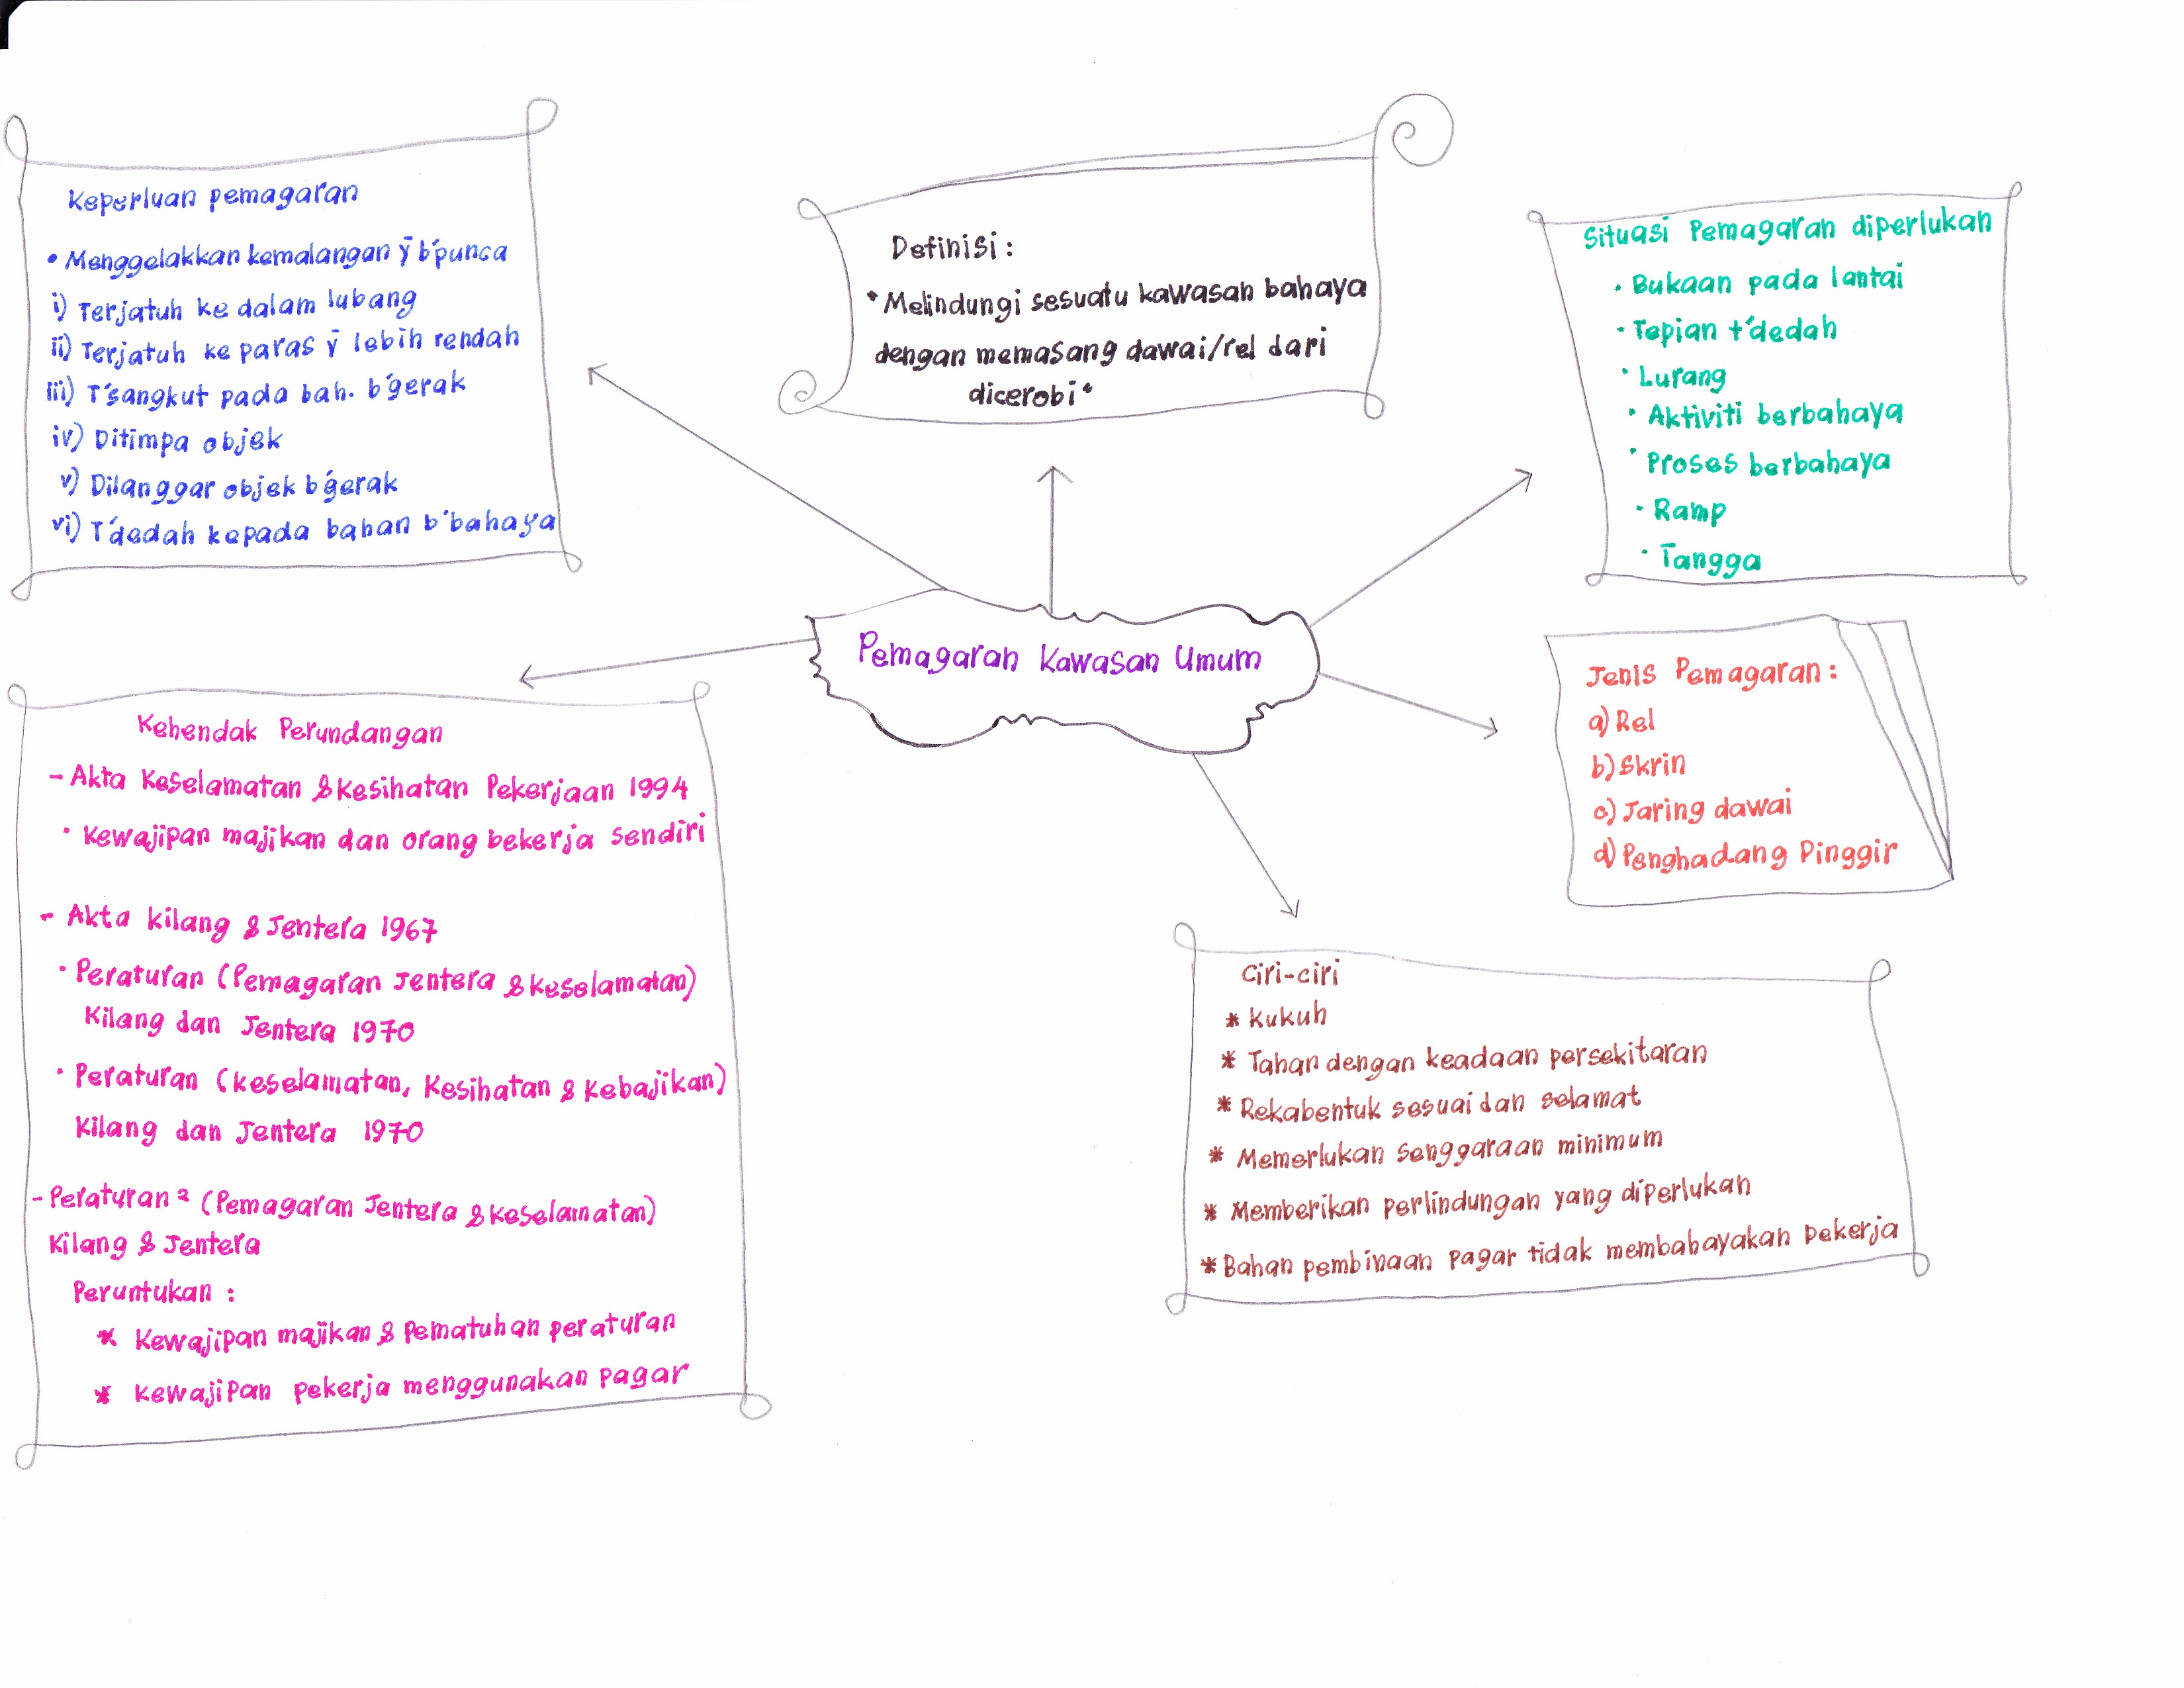 Keperluan pemagaran
• Menggelakkan kemalangan ȳ b'punca
i) Terjatuh ke dalam lubang
ii) Terjatuh ke paras ȳ lebih rendah
iii) T'sangkut pada bah. b'gerak
iv) Ditimpa objek
v) Dilanggar objek b'gerak
vi) T'dedah kepada bahan b'bahaya
Definisi :
* Melindungi sesuatu kawasan bahaya
dengan memasang dawai/rel dari
dicerobi *
Situasi Pemagaran diperlukan
• Bukaan pada lantai
• Tepian t'dedah
• Lurang
• Aktiviti berbahaya
• Proses berbahaya
• Ramp
• Tangga
Pemagaran Kawasan Umum
Jenis Pemagaran :
a) Rel
b) Skrin
c) Jaring dawai
d) Penghadang Pinggir
Kehendak Perundangan
- Akta Keselamatan & Kesihatan Pekerjaan 1994
• Kewajipan majikan dan orang bekerja sendiri
- Akta kilang & Jentera 1967
• Peraturan (Pemagaran Jentera & keselamatan)
Kilang dan Jentera 1970
• Peraturan (keselamatan, Kesihatan & Kebajikan)
Kilang dan Jentera 1970
- Peraturan² (Pemagaran Jentera & Keselamatan)
Kilang & Jentera
Peruntukan :
* Kewajipan majikan & pematuhan peraturan
* Kewajipan pekerja menggunakan pagar
Ciri-ciri
* Kukuh
* Tahan dengan keadaan persekitaran
* Rekabentuk sesuai dan selamat
* Memerlukan senggaraan minimum
* Memberikan perlindungan yang diperlukan
* Bahan pembinaan pagar tidak membahayakan pekerja